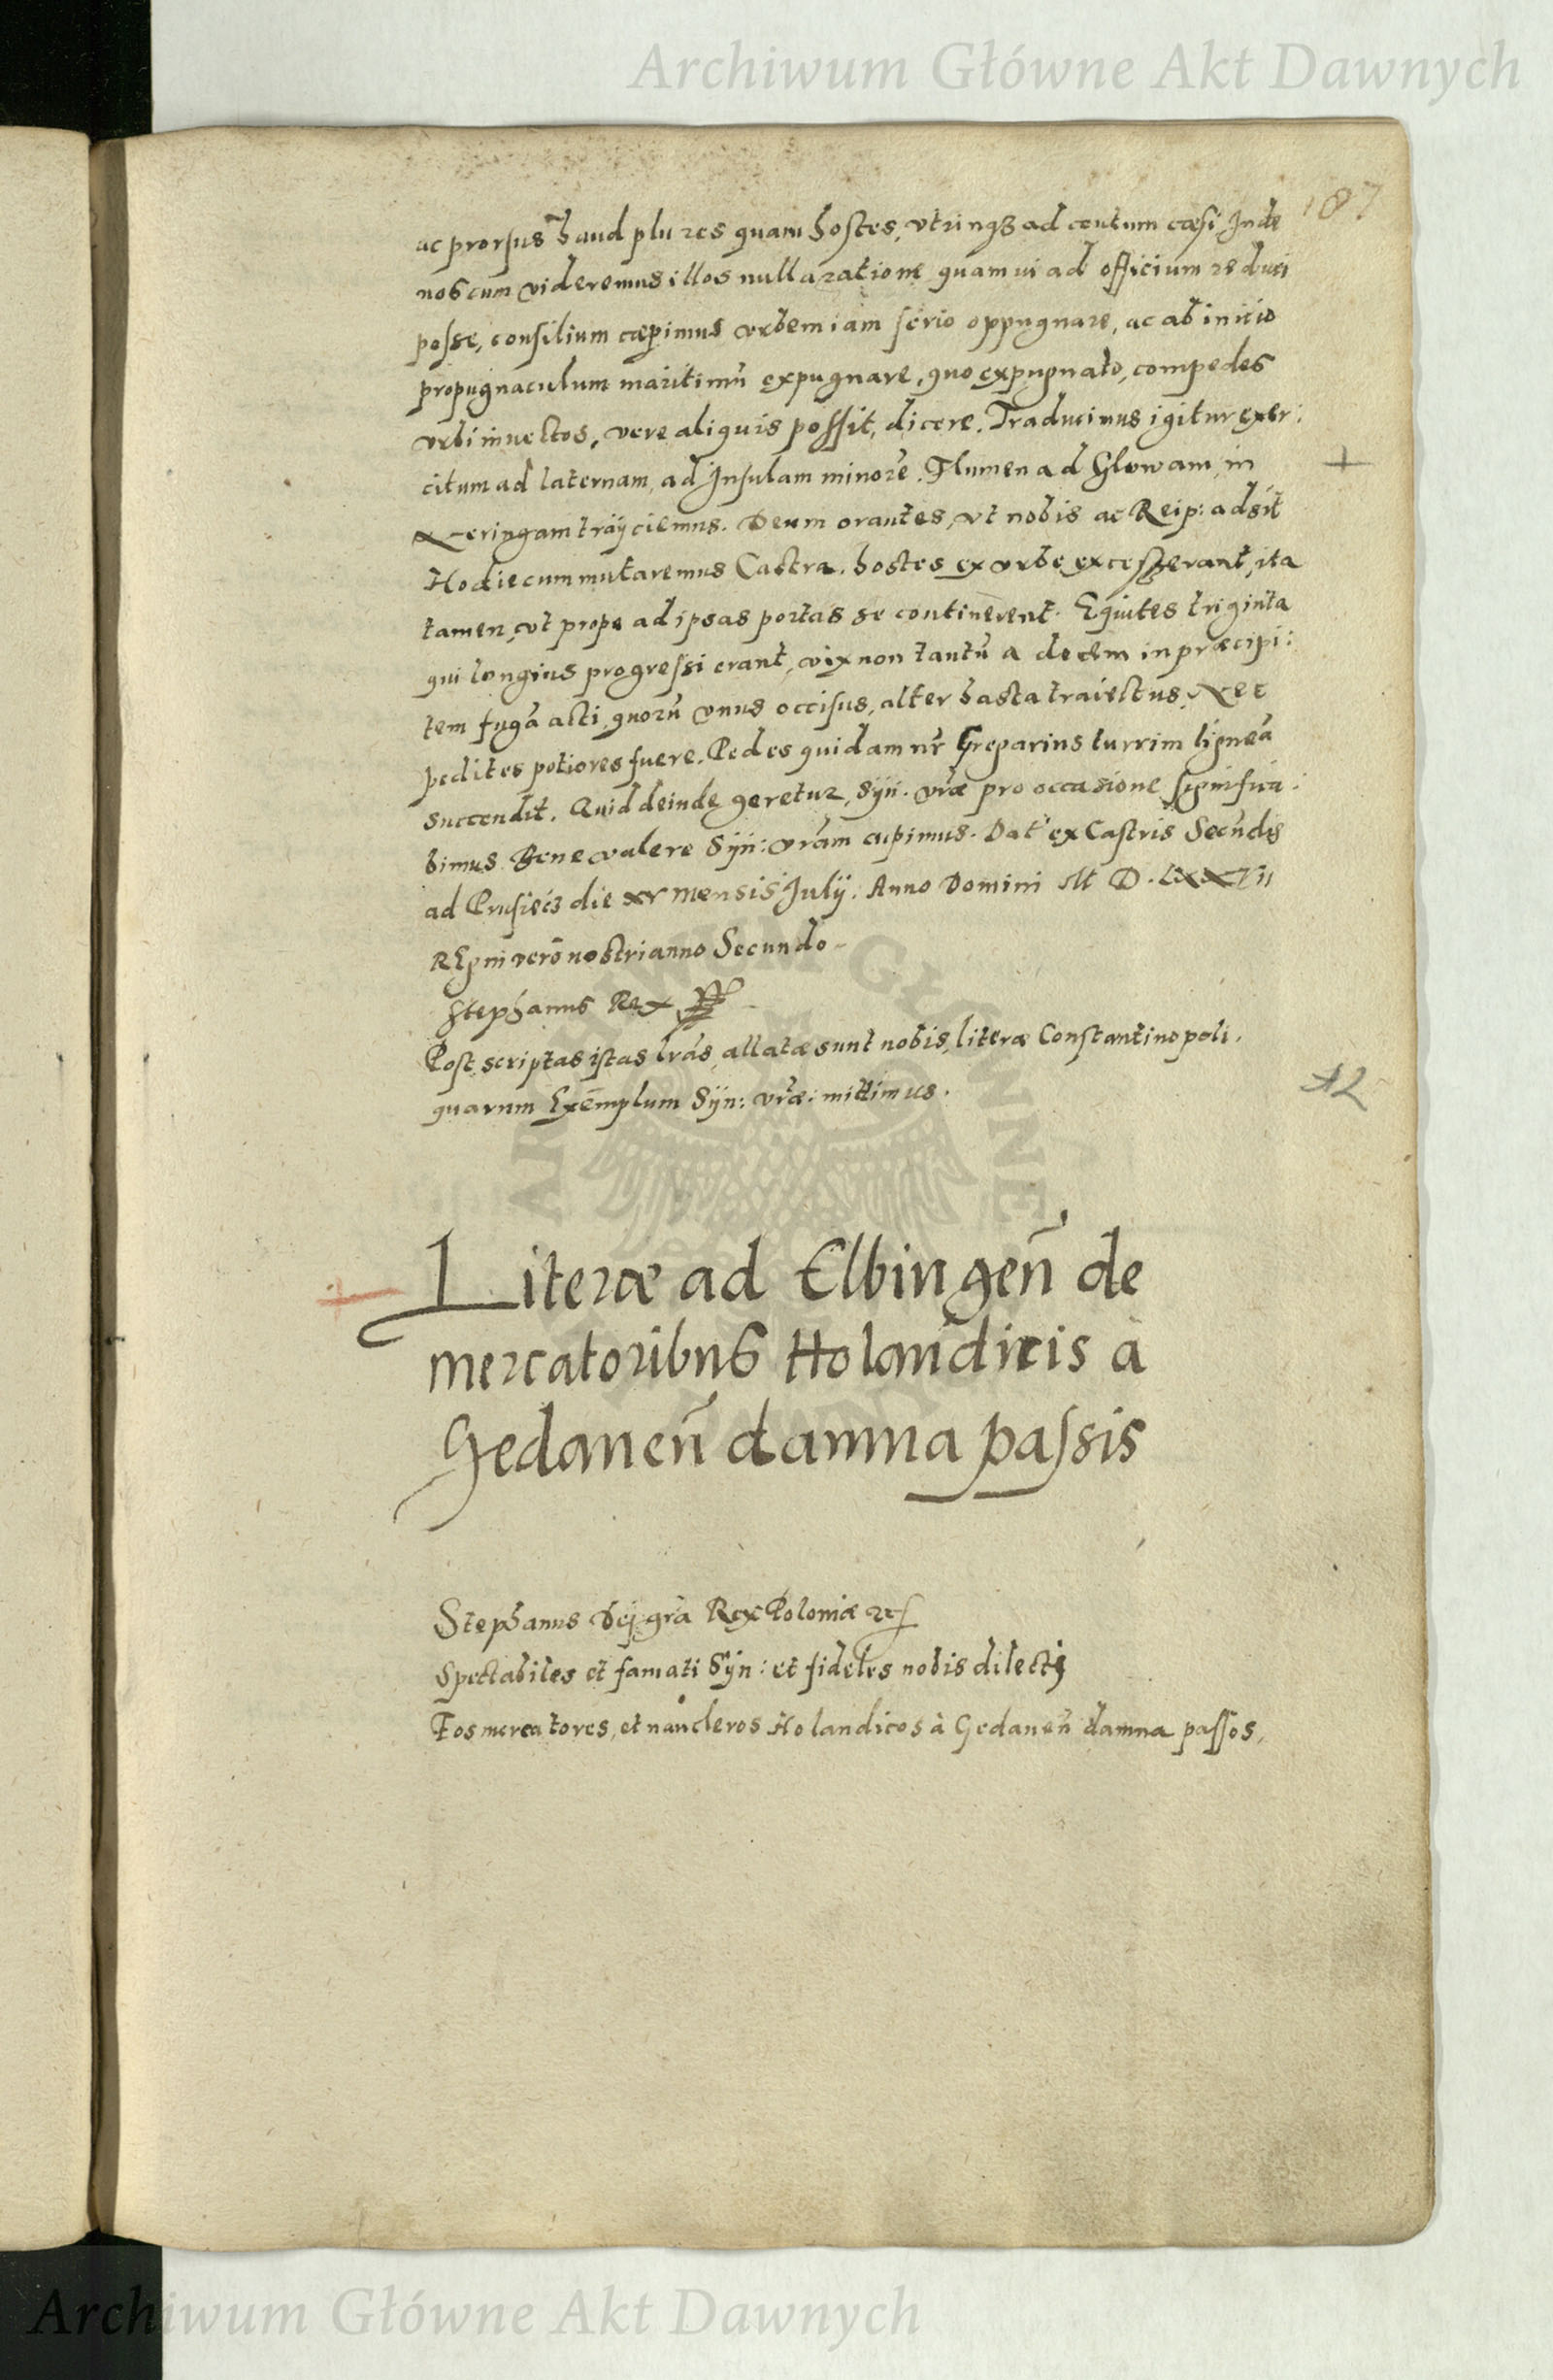 Archiwum Główne Akt Dawnych
187
ac prorsus haud plures quam hostes, vtrinqꝫ ad centum cæsi, Inde
nos cum videremus illos nulla ratione quam ui ad officium reduci
posse, consilium cœpimus vrbem iam serio oppugnare, ac ab initio
propugnaculum maritimũ expugnare, quo expugnato, compedes
vrbi inuectos, vere aliquis possit, dicere. Traducimus igitur exer:
citum ad laternam, ad Insulam minorẽ. Flumen ad Glowam, in
Neringam traijciemus. Deum orantes, vt nobis ac Reip: adsit
Hodie cum mutaremus Castra. hostes ex vrbe excesserant, ita
tamen, vt prope ad ipsas portas se continerent. Equites triginta
qui longius progressi erant, vix non tantũ a decem in præcipi:
tem fugã acti, quorũ vnus occisus, alter hasta traiectus, Nec
pedites potiores fuere. Pedes quidam nr̃ Gregarius turrim ligneã
succendit. Quid deinde geretur, Syñ. vræ pro occasione significa:
bimus. Bene valere Syñ: vrãm cupimus. Dat' ex Castris Secundis
ad Prusiecz die XV mensis Julij. Anno Domini M D. LXXVII
REgni verò nostri anno Secundo
Stephanus Rex
Post scriptas istas lrãs, allatæ sunt nobis, literæ Constantinopoli.
quarum Exemplum Syn: vræ: mittimus.
Literæ ad Elbingeñ de
mercatoribus Holandicis à
Gedaneñ damna passis
Stephanus Dej grã Rex Poloniæ etc
Spectabiles et famati Syn: et fideles nobis dilectj
Eos mercatores, et naucleros Holandicos à Gedaneñ damna passos,
Archiwum Główne Akt Dawnych